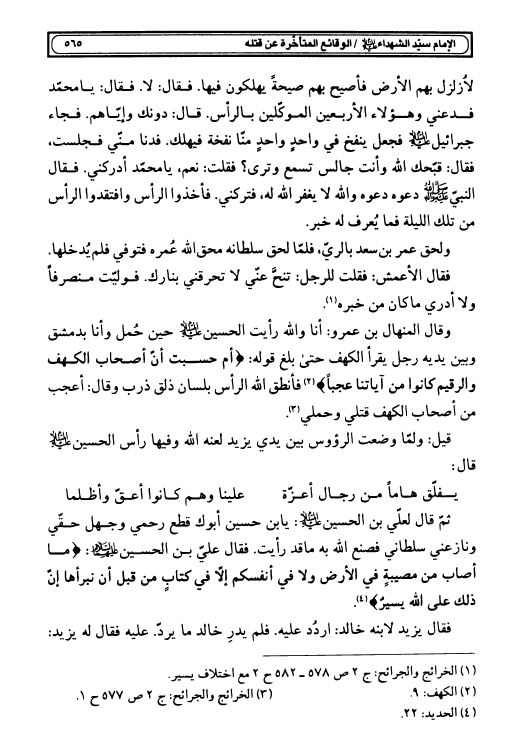 الإمام سيّد الشهداء عليه السلام / الوقائع المتأخّرة عن قتله ٥٦٥
لأزلزل بهم الأرض فأصيح بهم صيحةً يهلكون فيها. فقال: لا. فقال: يامحمّد
فدعني وهؤلاء الأربعين الموكّلين بالرأس. قال: دونك وإيّاهم. فجاء
جبرائيل عليه السلام فجعل ينفخ في واحدٍ واحدٍ منّا نفخة فيهلك. فدنا منّي فجلست،
فقال: قبّحك الله وأنت جالس تسمع وترى؟ فقلت: نعم، يامحمّد أدركني. فقال
النبيّ صلى الله عليه وآله دعوه دعوه والله لا يغفر الله له، فتركني. فأخذوا الرأس وافتقدوا الرأس
من تلك الليلة فما يُعرف له خبر.
ولحق عمر بن سعد بالريّ، فلمّا لحق سلطانه محق الله عُمره فتوفي فلم يُدخلها.
فقال الأعمش: فقلت للرجل: تنحَّ عنّي لا تحرقني بنارك. فولّيت منصرفاً
ولا أدري ماكان من خبره(١).
وقال المنهال بن عمرو: أنا والله رأيت الحسين عليه السلام حين حُمل وأنا بدمشق
وبين يديه رجل يقرأ الكهف حتىٰ بلغ قوله: ﴿أم حسبت أنّ أصحاب الكهف
والرقيم كانوا من آياتنا عجباً﴾(٢) فأنطق الله الرأس بلسان ذلق ذرب وقال: أعجب
من أصحاب الكهف قتلي وحملي(٣).
قيل: ولمّا وضعت الرؤوس بين يدي يزيد لعنه الله وفيها رأس الحسين عليه السلام
قال:
يـفلّق هاماً مـن رجال أعـزّة علينا وهـم كـانوا أعـقّ وأظـلما
ثمّ قال لعلّي بن الحسين عليه السلام: يابن حسين أبوك قطع رحمي وجهل حقّي
ونازعني سلطاني فصنع الله به ماقد رأيت. فقال عليّ بـن الحسـين عليهما السلام: ﴿مـا
أصاب من مصيبةٍ في الأرض ولا في أنفسكم إلّا في كتابٍ من قبل أن نبرأها إنّ
ذلك على الله يسيرٌ﴾(٤).
فقال يزيد لابنه خالد: اردُد عليه. فلم يدرِ خالد ما يردّ. عليه فقال له يزيد:
(١) الخرائج والجرائح: ج ٢ ص ٥٧٨ ـ ٥٨٢ ح ٢ مع اختلاف يسير.
(٢) الكهف: ٩. (٣) الخرائج والجرائح: ج ٢ ص ٥٧٧ ح ١.
(٤) الحديد: ٢٢.